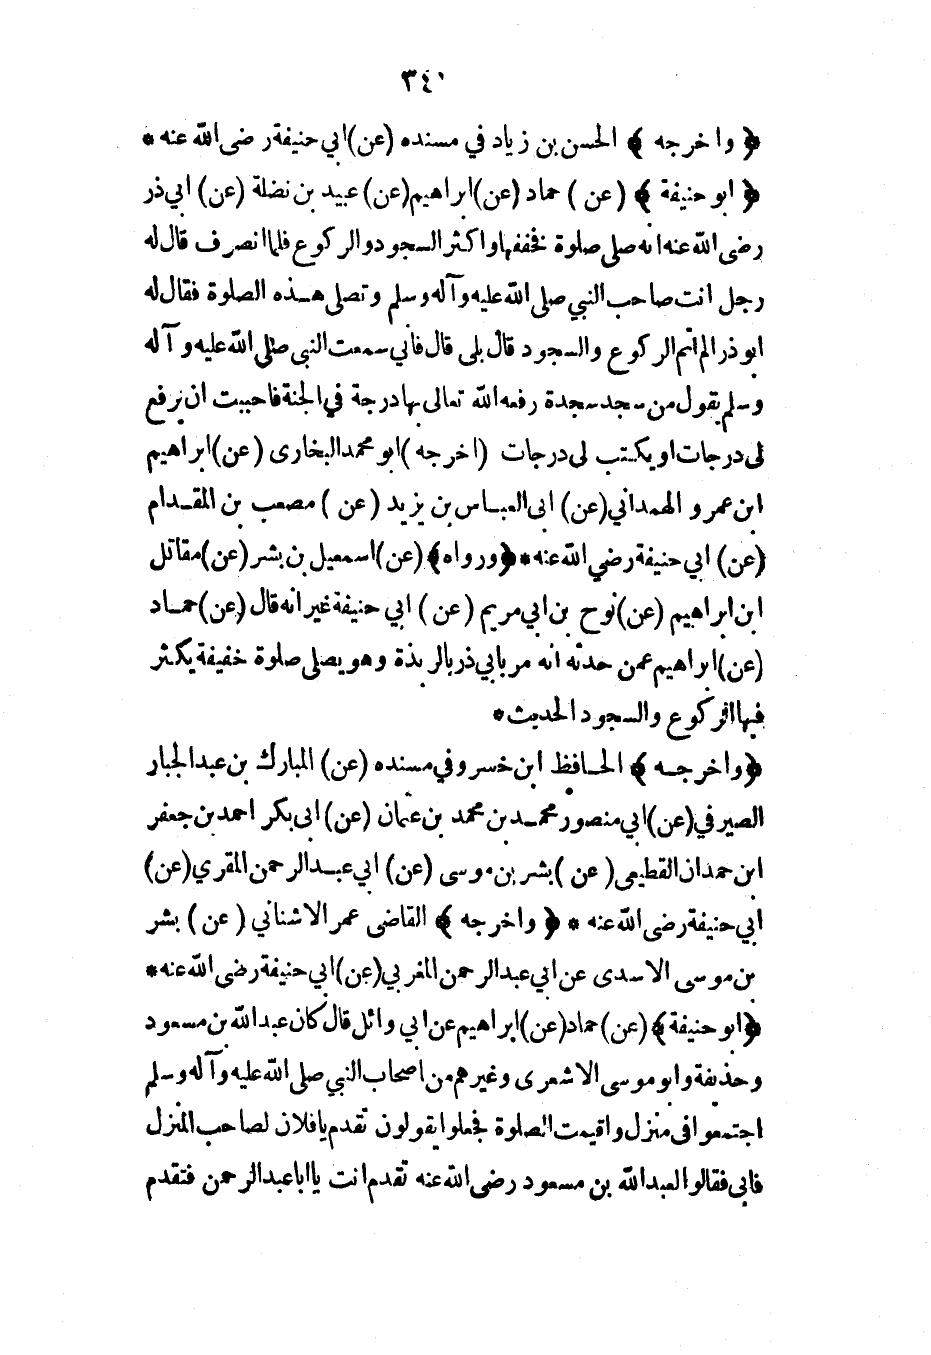 ٣٤٠
﴿ واخرجه ﴾ الحسن بن زياد في مسنده (عن) ابي حنيفة رضى الله عنه *
﴿ ابو حنيفة ﴾ (عن) حماد (عن) ابراهيم (عن) عبيد بن نضلة (عن) ابي ذر
رضى الله عنه انه صلى صلوة فخففها واكثر السجود والركوع فلما انصرف قال له
رجل انت صاحب النبي صلى الله عليه وآله وسلم وتصلى هذه الصلوة فقال له
ابوذر الم اتم الركوع والسجود قال بلى قال فاني سمعت النبي صلى الله عليه وآله
وسلم يقول من سجد سجدة رفعه الله تعالى بها درجة في الجنة فاحببت ان ترفع
لى درجات او يكتب لى درجات (اخرجه) ابو محمد البخارى (عن) ابراهيم
ابن عمرو الهمداني (عن) ابى العباس بن يزيد (عن) مصعب بن المقدام
(عن) ابي حنيفة رضي الله عنه * ﴿ ورواه ﴾ (عن) اسمعيل بن بشر (عن) مقاتل
ابن ابراهيم (عن) نوح بن ابي مريم (عن) ابي حنيفة غير انه قال (عن) حماد
(عن) ابراهيم عمن حدثه انه مر بابي ذر بالربذة وهو يصلى صلوة خفيفة يكثر
فيها الركوع والسجود الحديث *
﴿ واخرجه ﴾ الحافظ ابن خسرو في مسنده (عن) المبارك بن عبد الجبار
الصيرفي (عن) ابي منصور محمد بن محمد بن عثمان (عن) ابى بكر احمد بن جعفر
ابن حمدان القطيعى (عن) بشر بن موسى (عن) ابي عبد الرحمن المقري (عن)
ابي حنيفة رضى الله عنه * ﴿ واخرجه ﴾ القاضى عمر الاشناني (عن) بشر
بن موسى الاسدى عن ابي عبد الرحمن المغربي (عن) ابي حنيفة رضى الله عنه *
﴿ ابو حنيفة ﴾ (عن) حماد (عن) ابراهيم عن ابي وائل قال كان عبد الله بن مسعود
وحذيفة وابو موسى الاشعرى وغيرهم من اصحاب النبي صلى الله عليه وآله وسلم
اجتمعوا فى منزل واقيمت الصلوة فجعلوا يقولون تقدم يا فلان لصاحب المنزل
فابى فقالوا لعبد الله بن مسعود رضى الله عنه تقدم انت يا ابا عبد الرحمن فتقدم